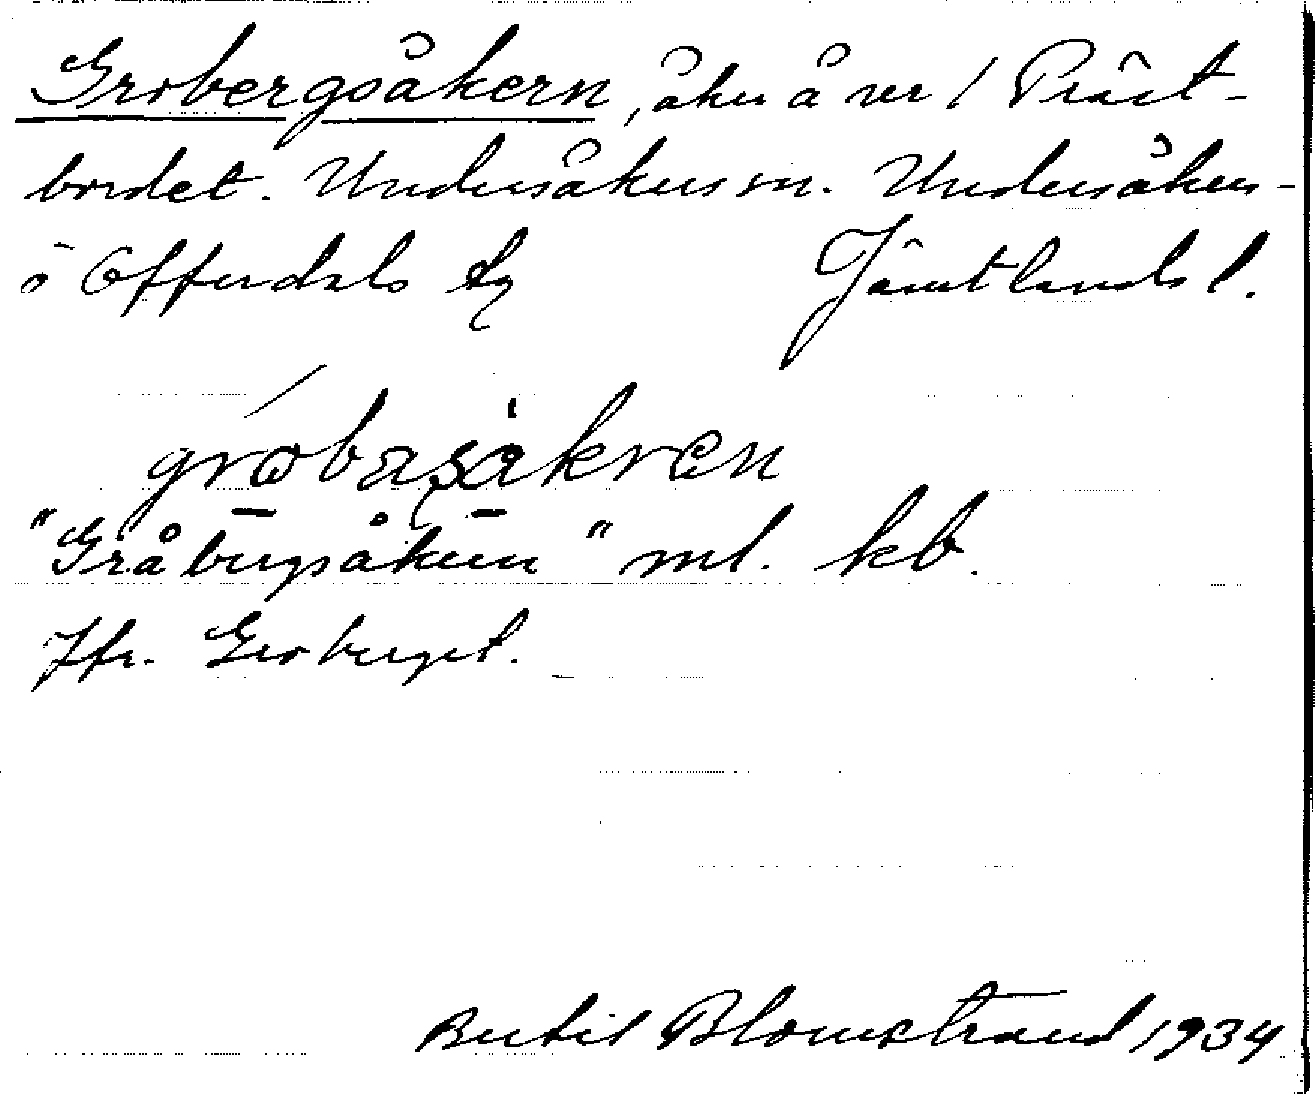 Grobergsåkern, åker å nr 1 Präst-
bordet. Undersåkers sn. Undersåkers-
o Offerdals tg Jämtlands l.
grobasåkren
"Gråbergsåkern" ml. kb.
Jfr. Groberget.
Bertil Blomstrand 1934